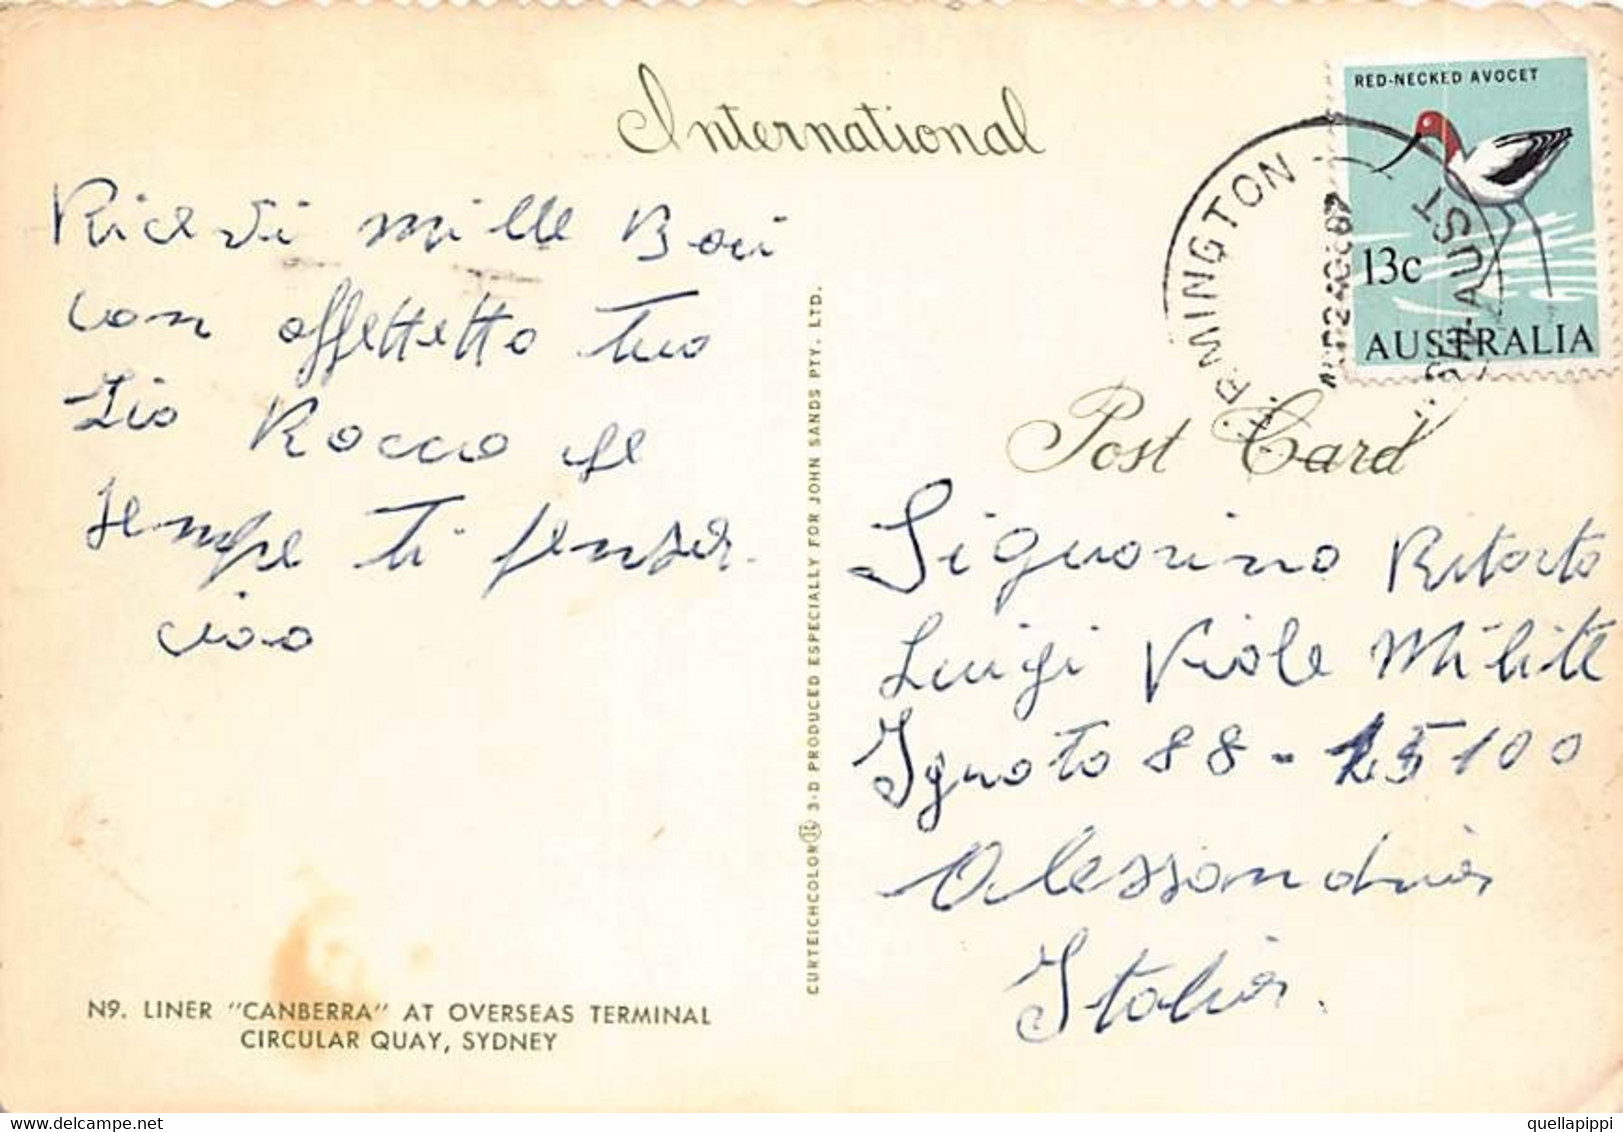 International
RED-NECKED AVOCET
13c
AUSTRALIA
Ricevi mille Baci
con affettetto tuo
Zio Rocco che
sempre ti pensa.
ciao
N9. LINER "CANBERRA" AT OVERSEAS TERMINAL
CIRCULAR QUAY, SYDNEY
CURTEICHCOLOR 3-D PRODUCED ESPECIALLY FOR JOHN SANDS PTY. LTD.
Post Card
Signorino Ritorto
Luigi Viale Milite
Ignoto 88 - 15100
Alessandria
Italia.
quellapippi